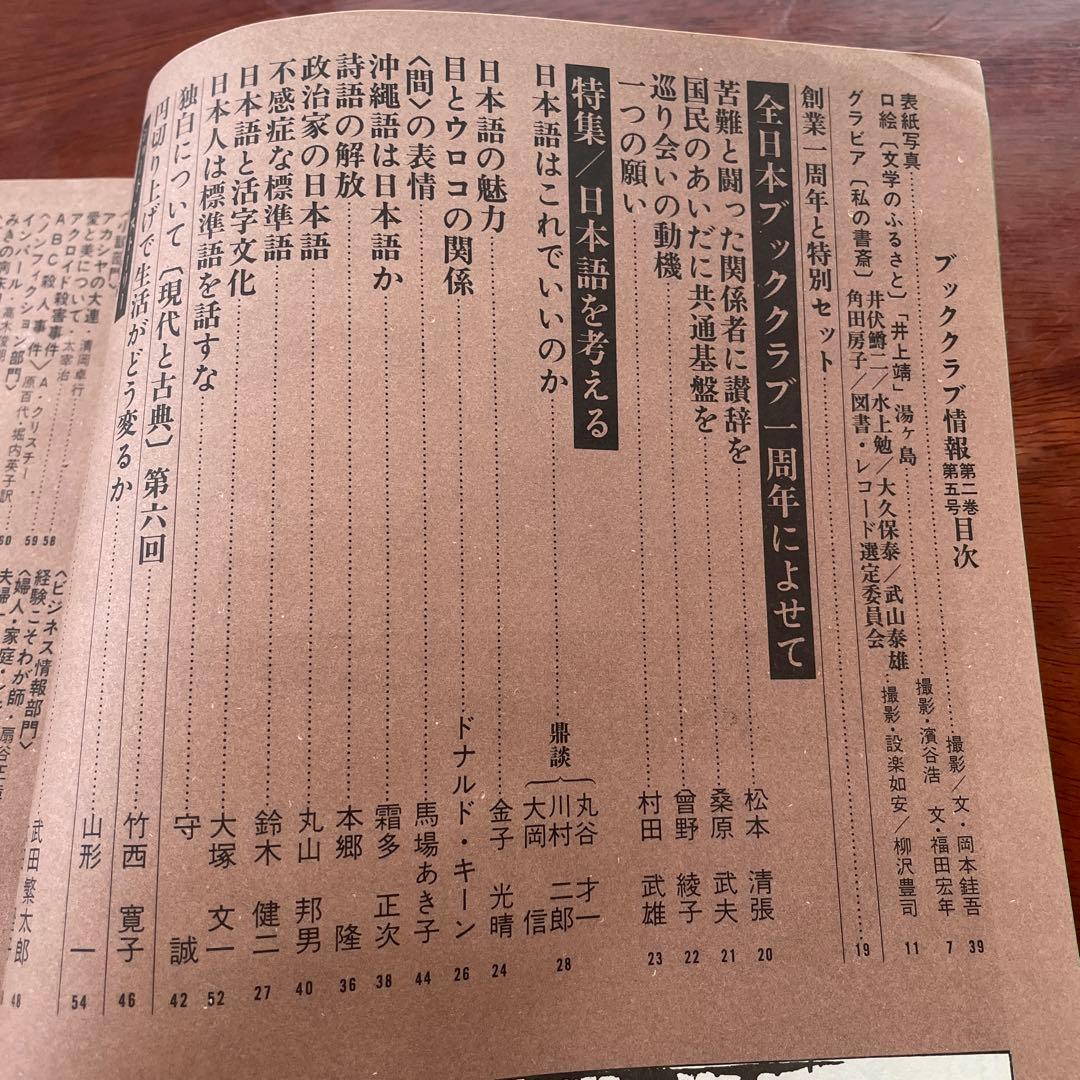 ブッククラブ情報 第二巻第五号 目次
表紙写真……撮影／文・岡本鉒吾 39
口絵〔文学のふるさと〕「井上靖」湯ヶ島……撮影・濱谷浩 文・福田宏年 7
グラビア〔私の書斎〕井伏鱒二／水上勉／大久保泰／武山泰雄・撮影・設楽如安／柳沢豊司 11
角田房子／図書・レコード選定委員会
創業一周年と特別セット…… 19
全日本ブッククラブ一周年によせて
苦難と闘った関係者に讃辞を……松本 清張 20
国民のあいだに共通基盤を……桑原 武夫 21
巡り会いの動機……曾野 綾子 22
一つの願い……村田 武雄 23
特集／日本語を考える
日本語はこれでいいのか……鼎談 丸谷 才一 川村 二郎 大岡 信 28
日本語の魅力……金子 光晴 24
目とウロコの関係……ドナルド・キーン 26
〈間〉の表情……馬場あき子 44
沖縄語は日本語か……霜多 正次 38
詩語の解放……本郷 隆 36
政治家の日本語……丸山 邦男 40
不感症な標準語……鈴木 健二 27
日本語と活字文化……大塚 文一 52
日本人は標準語を話すな……守 誠 42
独白について〔現代と古典〕第六回……竹西 寛子 46
円切り上げで生活がどう変るか……山形 一 54
アカシヤの大連……清岡卓行
愛と美について・太宰治
アクロイド殺害事件
ABC殺人事件 A・クリスチー 58
〈ノンフィクション部門〉 原百代・堀内英子訳 59
インパール……高木俊朗 60
〈ビジネス情報部門〉
経験こそわが師・扇谷
武田繁太郎 48
〈婦人・家庭・